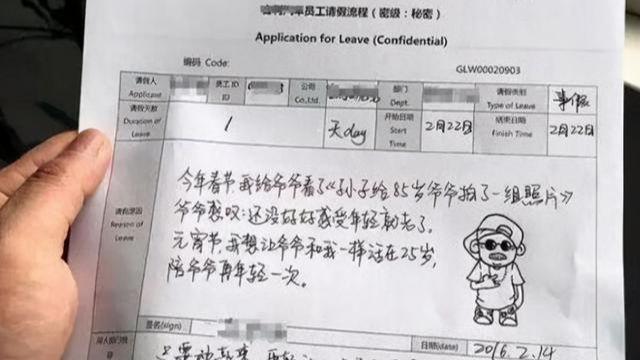 汽车员工请假流程（密级：秘密）
Application for Leave (Confidential)
编码 Code:
GLW00020903
请假人 Applicant
员工ID ID
公司 Co.,Ltd.
部门 Dept.
请假类别 Type of Leave
事假
请假天数 Duration of Leave
1
天day
开始日期 Start Time
2月22日
结束日期 Finish Time
2月22日
请假原因 Reason of Leave
今年春节我给爷爷看了《孙子给85岁爷爷拍了一组照片》
爷爷感叹：还没好好感受年轻就老了。
元宵节，我想让爷爷和我一样活在25岁，
陪爷爷再年轻一次。
签名(sign)
日期(date)
2016.2.14